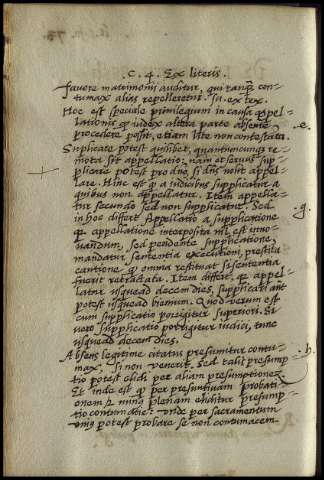 .C. 4. Ex literis.
Favore matrimonii auditur, qui tanq̃ con-
tumax alias repelleretur. su. ex tex.
Hoc est speciale privilegium in causa appel-
lationis q̃ iudex altera parte absente
procedere possit, etiam lite non contestata. .e.
Suplicare potest quilibet, quantumcunq̃ re-
mota sit appellatio: nam et servus sup-
plicare potest pro dño si dñs nolit appel-
lare. Hinc est q̃ a iudicibus supplicatur a
quibus non appellatur. Item appella-
tur secundo sed non supplicatur. Sed .g.
in hoc differt Appellatio a supplicatione
q̃ appellatione interposita nil est inno-
vandum, sed pendente supplicatione
mandatur sententia executioni, prestita
cautione q̃ omnia restituat si sententia
fuerit retractata. Item differt q̃ appel-
latur usque ad decem dies, supplicari aut̃
potest usque ad biennium. Quod verum est
cum supplicatio porrigitur superiori. Si
vero supplicatio porrigitur iudici, tunc
usque ad decem dies.
Absens legitime citatus presumitur contu- .h.
max, si non venerit. Sed talis presump-
tio potest elidi per aliam presumptionẽ.
Et inde est q̃ per presumptivam probati-
onem & minus plenam eliditur presump-
tio contumaciae: unde per sacramentum
potest probare se non contumacem